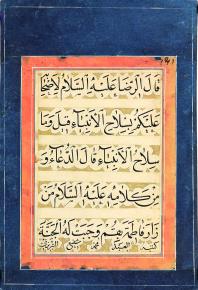 قَالَ الرِّضَا عَلَيْهِ السَّلَامُ لِأَصْحَابِهِ
عَلَيْكُمْ بِسِلَاحِ الْأَنْبِيَاءِ قِيلَ وَمَا
سِلَاحُ الْأَنْبِيَاءِ قَالَ الدُّعَاءُ وَ
مِنْ كَلَامِهِ عَلَيْهِ السَّلَامُ مَنْ
زَارَ فَاطِمَةَ بِقُمْ وَجَبَتْ لَهُ الْجَنَّةُ
كتبه العبد محمد